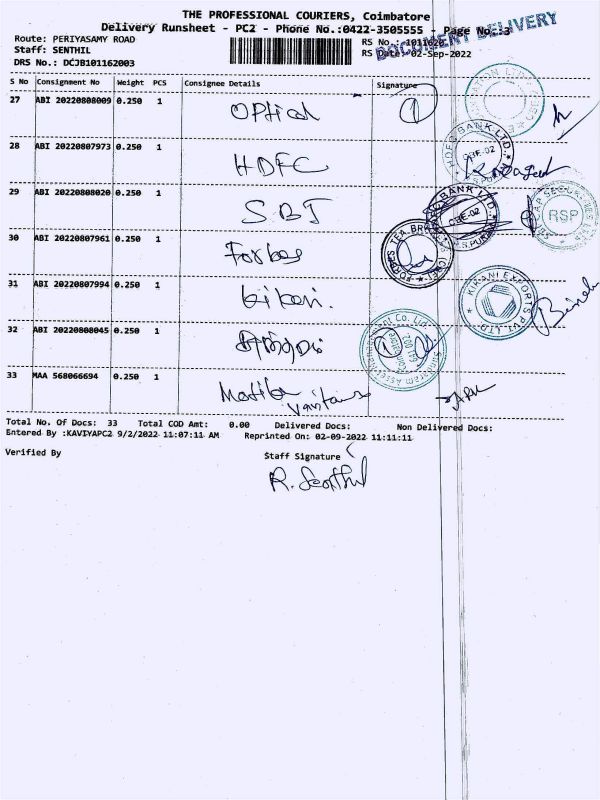 THE PROFESSIONAL COURIERS, Coimbatore
Delivery Runsheet - PC2 - Phone No.:0422-3505555 Page No.:3
DOCUMENT DELIVERY
Route: PERIYASAMY ROAD
RS No.: 1011620
Staff: SENTHIL
RS Date: 02-Sep-2022
DRS No.: DCJB101162003
S No Consignment No Weight PCS Consignee Details Signature
27 ABI 20220808009 0.250 1 Optical 1
28 ABI 20220807973 0.250 1 HDFC
HDFC BANK LTD. CBE-02
29 ABI 20220808020 0.250 1 SBI
BANK LTD. CBE-02
RSP
30 ABI 20220807961 0.250 1 Forbes
FORBES TEA BRO (CBE)
31 ABI 20220807994 0.250 1 kikani.
KIKANI EXPORTS PVT. LTD.
32 ABI 20220808045 0.250 1
Co. Ltd 641 002 Coimbatore Sundaram Asset
33 MAA 568066694 0.250 1
Total No. Of Docs: 33 Total COD Amt: 0.00 Delivered Docs: Non Delivered Docs:
Entered By :KAVIYAPC2 9/2/2022 11:07:11 AM Reprinted On: 02-09-2022 11:11:11
Verified By Staff Signature
R. Senthil